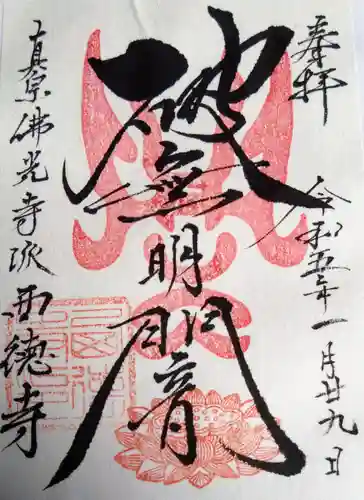 奉拝
令和五年一月廿九日
破無明闇
真宗佛光寺派 西徳寺